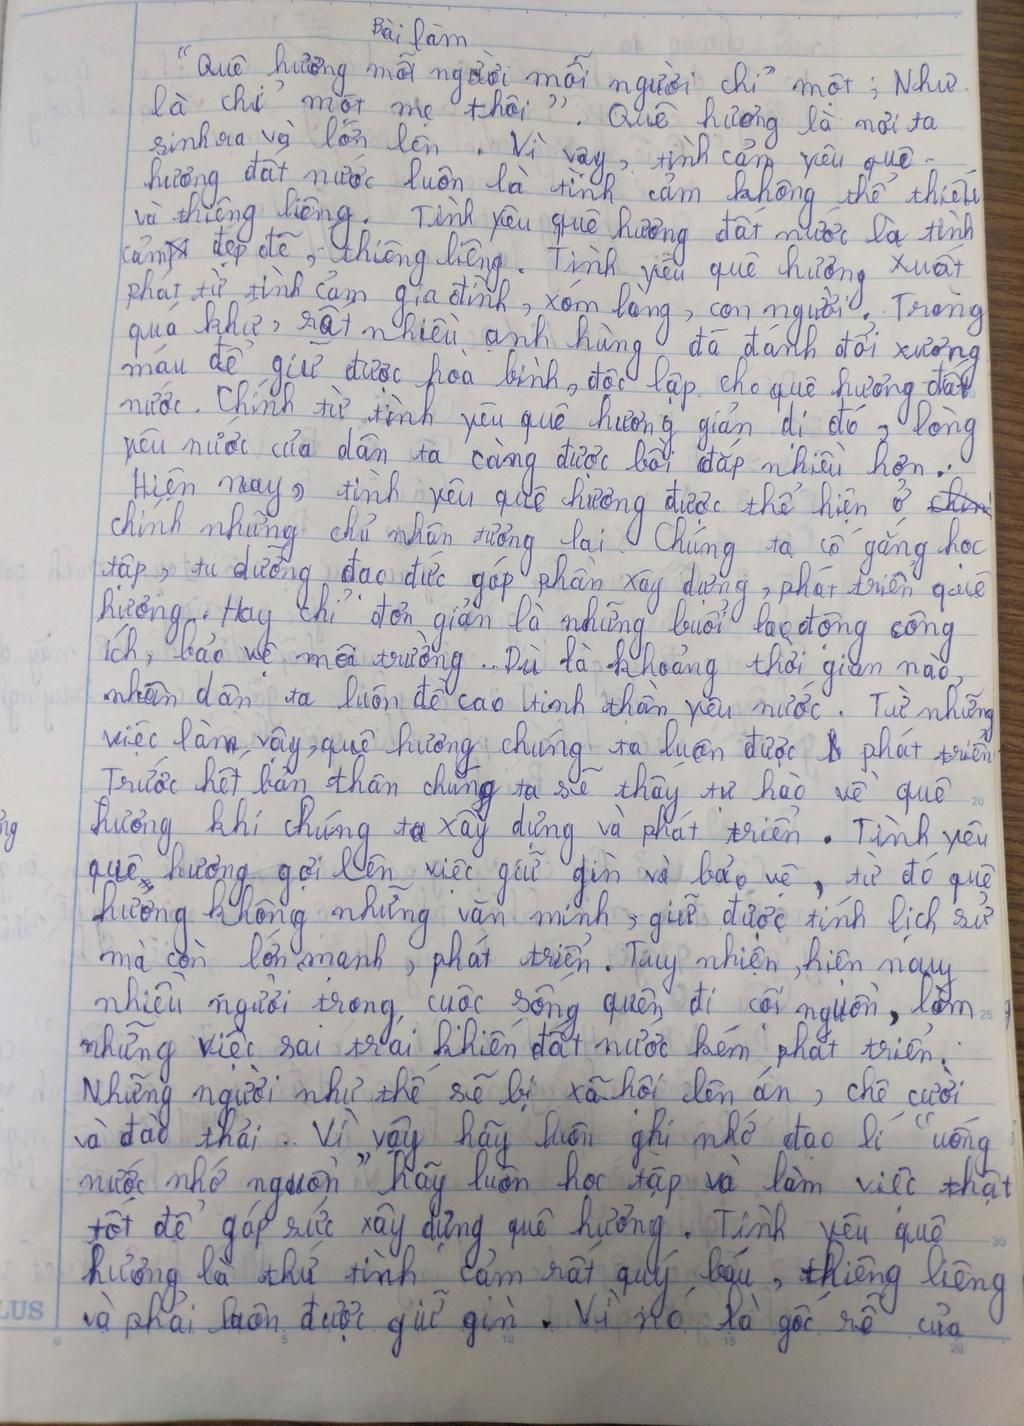 Bài làm
"Quê hương mỗi người mỗi người chỉ một; Như
là chỉ một mẹ thôi". Quê hương là nơi ta
sinh ra và lớn lên. Vì vậy, tình cảm yêu quê
hương đất nước luôn là tình cảm không thể thiếu
và thiêng liêng. Tình yêu quê hương đất nước là tình
cảm đẹp đẽ, thiêng liêng. Tình yêu quê hương xuất
phát từ tình cảm gia đình, xóm làng, con người. Trong
quá khứ, rất nhiều anh hùng đã đánh đổi xương
máu để giữ được hoà bình, độc lập cho quê hương đất
nước. Chính từ tình yêu quê hương giản dị đó, lòng
yêu nước của dân ta càng được bồi đắp nhiều hơn.
Hiện nay, tình yêu quê hương được thể hiện ở
chính những chủ nhân tương lai. Chúng ta cố gắng học
tập, tu dưỡng đạo đức góp phần xây dựng, phát triển quê
hương. Hay chỉ đơn giản là những buổi lao động công
ích, bảo vệ môi trường.. Dù là khoảng thời gian nào,
nhân dân ta luôn đề cao tinh thần yêu nước. Từ những
việc làm vậy, quê hương chúng ta luôn được phát triển
Trước hết bản thân chúng ta sẽ thấy tự hào về quê
hương khi chúng ta xây dựng và phát triển. Tình yêu
quê hương gợi lên việc giữ gìn và bảo vệ, từ đó quê
hương không những văn minh, giữ được tính lịch sử
mà còn lớn mạnh, phát triển. Tuy nhiên, hiện nay
nhiều người trong cuộc sống quên đi cội nguồn, làm
những việc sai trái khiến đất nước kém phát triển.
Những người như thế sẽ bị xã hội lên án, chê cười
và đào thải. Vì vậy hãy luôn ghi nhớ đạo lí "uống
nước nhớ nguồn" hãy luôn học tập và làm việc thật
tốt để góp sức xây dựng quê hương. Tình yêu quê
hương là thứ tình cảm rất quý báu, thiêng liêng
và phải luôn được giữ gìn. Vì nó là gốc rễ của
LUS